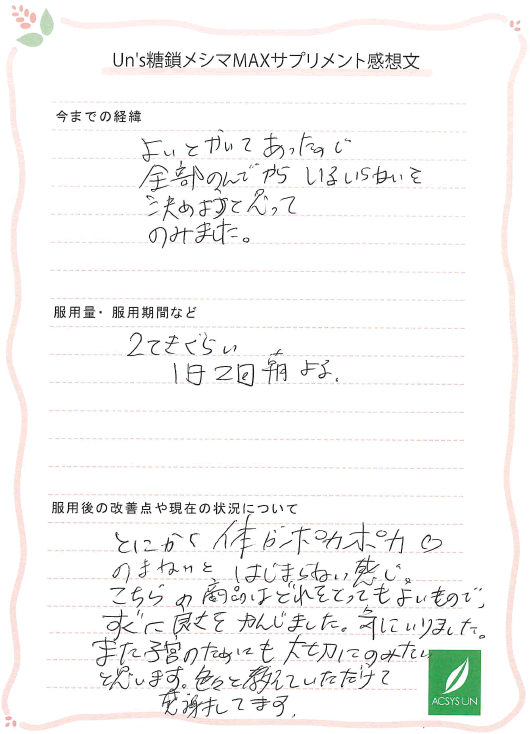 Un's糖鎖メシマMAXサプリメント感想文
今までの経緯
よいとかいてあったので
全部のんでから いるいらないを
決めようと思って
のみました。
服用量・服用期間など
2てきぐらい
1日2回 朝 よる.
服用後の改善点や現在の状況について
とにかく 体がポカポカ♡
のまないと はじまらない感じ。
こちらの商品はどれをとってもよいもので、
すぐに良さをかんじました。気にいりました。
また子宮のためにも 大切にのみたい
と思います。色々と教えていただけて
感謝してます.
ACSYS UN